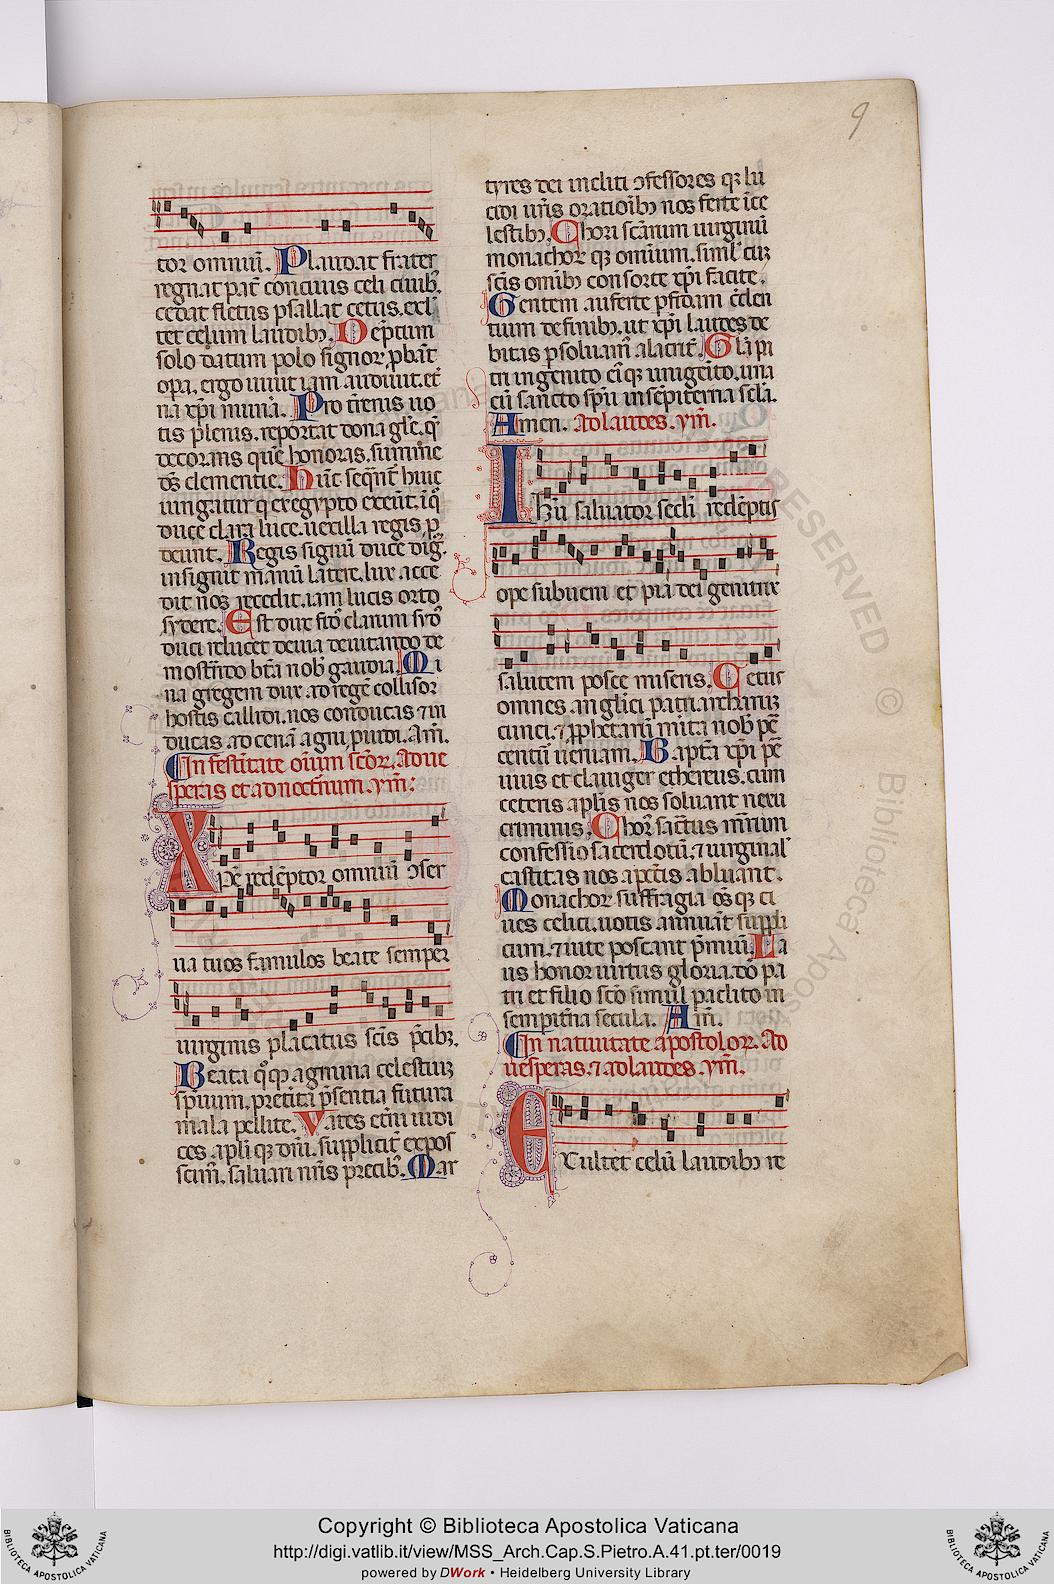 9
tor omniũ. Plaudat frater
regnat pat̃ concivis celi civibꝫ.
cedat fletus psallat cetus. exl̃
tet celum laudibꝫ. Deptum
solo datum polo signoꝝ ꝓbãt
opa. ergo vivit iam audivit. et̃
na xp̃i muña. Pro et̃nis vo
tis plenis. reportat dona gl̃e. q̃
decorans que honoras. summe
ds̃ clementie. Hũc seqũt huic
iungũtur q̃ ex egypto exeũt. ĩ q̃
duce clara luce. vexilla regis ꝓ
deunt. Regis signũ duce dig̃.
insignit manũ latere. lux acce
dit nos recedit. iam lucis orto
sydere. Est dux fid̃ clarum sydꝰ
duci relucet devia devitando de
mostr̃do bt̃a nobꝭ gaudia. Mi
na gregem dux ad regẽ collisoꝝ
hostis callidi. nos conducas ⁊ in
ducas. ad cenã agni ꝓvidi. Am̃.
In festĩtate oĩum sc̃oꝝ. Ad ve
speris et ad noct̃num. ym̃:
Xp̃e redẽptor omniũ ↄser
va tuos famulos beate semper
virginis placatus sc̃is p̃cibꝫ.
Beata q̃ꝫ agmina celestiuꝫ
sp̃ituum. pret̃ita p̃sentia futura
mala pellite. Vates et̃ni iudi
ces apl̃i qꝫ dñi. supplicit̃ expos
scim̃. salvari nr̃is precibꝫ. Mar
tyres dei incliti ↄfessores qꝫ lu
cidi vr̃is oratiõibꝫ nos ferte ĩ ce
lestibꝫ. Chori sc̃arum virginũ
monachoꝝ qꝫ omnium. simĩl cuꝫ
sc̃is omĩbꝫ consorte xp̃i facite.
Gentem auferte ꝑfidam cr̃den
tium de finibꝫ. ut xp̃i laudes de
bitas ꝑsolvam̃ alacrit̃. Gl̃a pa
tri ingenito eiꝰqꝫ unigeĩto. una
cũ sancto spũ in sempiterna scl̃a.
Amen. Ad laudes. ym̃.
Ihũ salvator secli redẽptis
ope subveni et pia dei genitrix
salutem posce miseris. Cetus
omnes anglici patriarcharuꝫ
cunei. ⁊ ꝓphetarũ mita nobꝭ p̃
centũ veniam. Baptã xp̃i p̃
vius et claviger ethereus. cum
ceteris aplĩs nos solvant nexu
criminis. Chorꝰ sac̃tus mr̃tum
confessio sacerdotũ. ⁊ virginal̃
castitas nos a pctĩs abluant.
Monachoꝝ suffragia oẽs qꝫ ci
ves celici. votis annuãt suppli
cum. ⁊ vite poscant p̃miũ. La
us honor virtus gloria dõ pa
tri et filio sc̃o simul paclito in
sempit̃na secula. Am̃.
In nativitate apostoloꝝ. Ad
vesperas. ⁊ ad laudes. ym̃.
Exultet celũ laudibꝫ re
RESERVED © Biblioteca Apos
Copyright © Biblioteca Apostolica Vaticana
http://digi.vatlib.it/view/MSS_Arch.Cap.S.Pietro.A.41.pt.ter/0019
powered by DWork • Heidelberg University Library
BIBLIOTECA APOSTOLICA VATICANA
BIBLIOTECA APOSTOLICA VATICANA